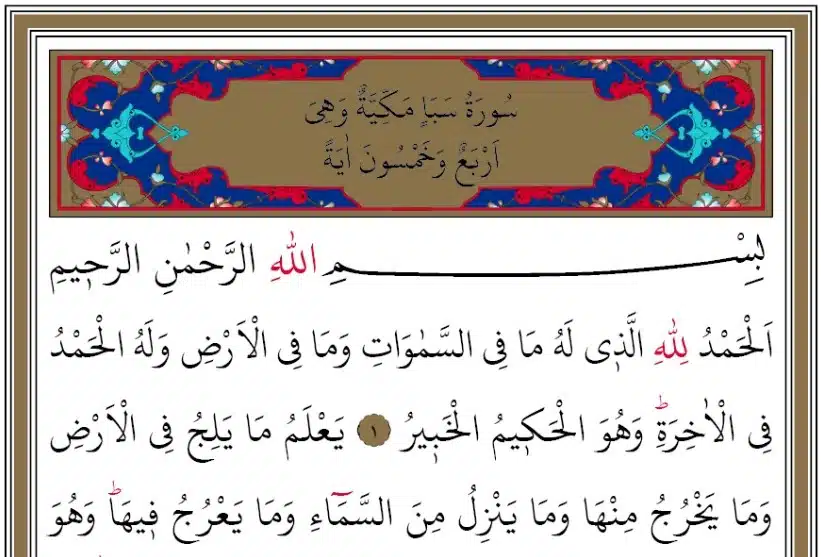 سُورَةُ سَبَاٍ مَكِّيَّةٌ وَهِىَ
اَرْبَعٌ وَخَمْسُونَ اٰيَةً
بِسْمِ اللّٰهِ الرَّحْمٰنِ الرَّحٖيمِ
اَلْحَمْدُ لِلّٰهِ الَّذٖى لَهُ مَا فِى السَّمٰوَاتِ وَمَا فِى الْاَرْضِ وَلَهُ الْحَمْدُ
فِى الْاٰخِرَةِؕ وَهُوَ الْحَكٖيمُ الْخَبٖيرُ ﴿١﴾ يَعْلَمُ مَا يَلِجُ فِى الْاَرْضِ
وَمَا يَخْرُجُ مِنْهَا وَمَا يَنْزِلُ مِنَ السَّمَٓاءِ وَمَا يَعْرُجُ فٖيهَاؕ وَهُوَ